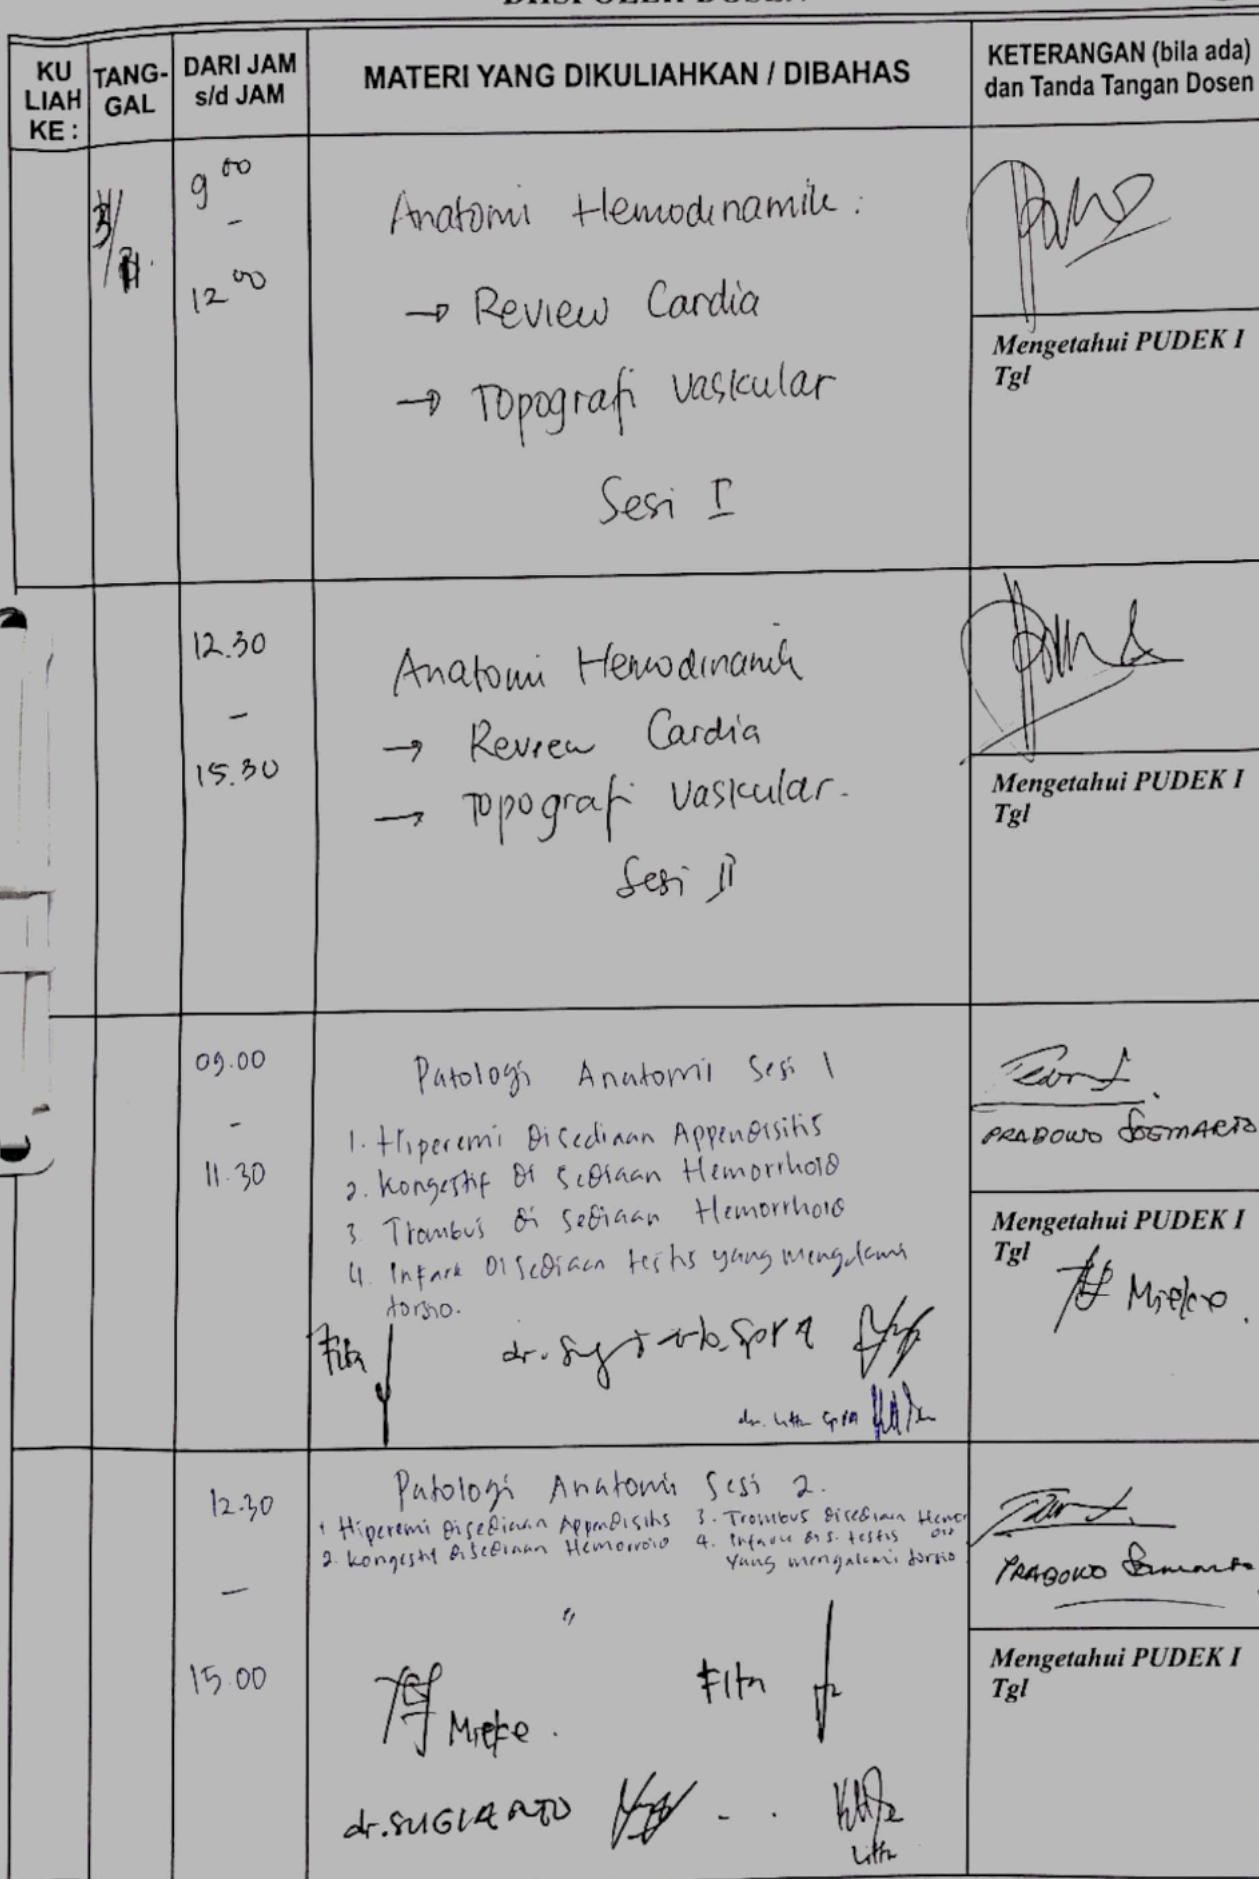 DIISI OLEH DOSEN
KU
LIAH
KE :
TANG-
GAL
DARI JAM
s/d JAM
MATERI YANG DIKULIAHKAN / DIBAHAS
KETERANGAN (bila ada)
dan Tanda Tangan Dosen
9 00
-
12 00
Anatomi Hemodinamik :
→ Review Cardia
→ Topografi vaskular
Sesi I
Mengetahui PUDEK I
Tgl
12.30
-
15.30
Anatomi Hemodinamik
→ Review Cardia
→ Topografi vaskular.
Sesi II
Mengetahui PUDEK I
Tgl
09.00
-
11.30
Patologi Anatomi Sesi 1
1. Hiperemi Disediaan Appendisitis
2. Kongestif di sediaan Hemorrhoid
3. Trombus di sediaan Hemorrhoid
4. Infark disediaan testis yang mengalami
torsio.
Fita
dr.
PRABOWO SOEMARTO
Mengetahui PUDEK I
Tgl
Mieke
12.30
-
15.00
Patologi Anatomi Sesi 2.
1. Hiperemi disediaan Appendisitis
2. Kongestif disediaan Hemorroid
3. Trombus disediaan Hemor
4. Infark di s. testis
yang mengalami torsio
Mieke.
Fita
dr. SUGIARTO
PRABOWO
Mengetahui PUDEK I
Tgl